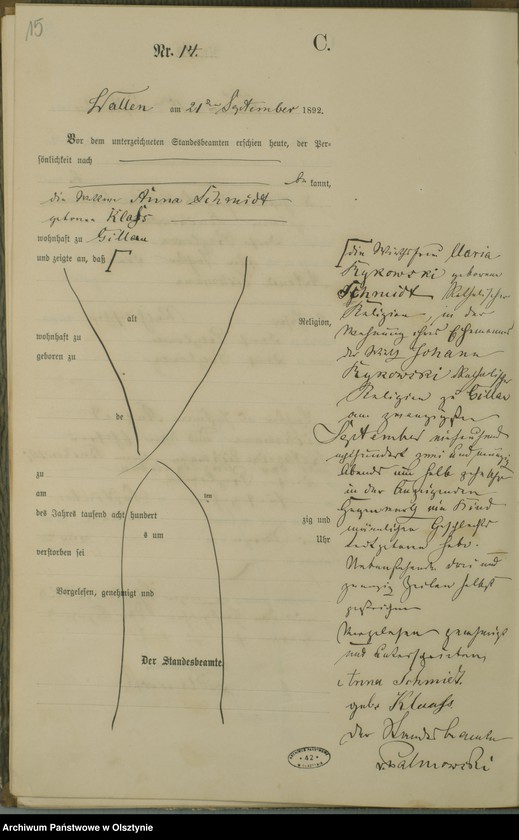 15
C.
Nr. 14.
Wallen am 21ten September 1892.
Vor dem unterzeichneten Standesbeamten erschien heute, der Per-
sönlichkeit nach
bekannt,
die Wittwe Anna Schmidt
geborene Klaß
wohnhaft zu Gillau
und zeigte an, daß
alt
Religion,
wohnhaft zu
geboren zu
de
zu
am ten
des Jahres tausend acht hundert zig und
s um Uhr
verstorben sei
Vorgelesen, genehmigt und
Der Standesbeamte.
die Wirthsfrau Maria
Kykowski geborene
Schmidt Katholischer
Religion, in der
Wohnung ihres Ehemannes
der Johann
Kykowski Katholischer
Religion zu Gillau
am zwanzigsten
September eintausend
achthundert zwei und neunzig
Abends um halb zehn Uhr
in der Anzeigenden
Gegenwart ein Kind
männlichen Geschlechts
todtgeboren habe.
Nebenstehende drei und
zwanzig Zeilen selbst
gestrichen
Vorgelesen genehmigt
und unterschrieben
Anna Schmidt
geb. Klaahs
Der Standesbeamte
v. Palmowski
ARCHIWUM PAŃSTWOWE
* 42 *
W OLSZTYNIE
Archiwum Państwowe w Olsztynie